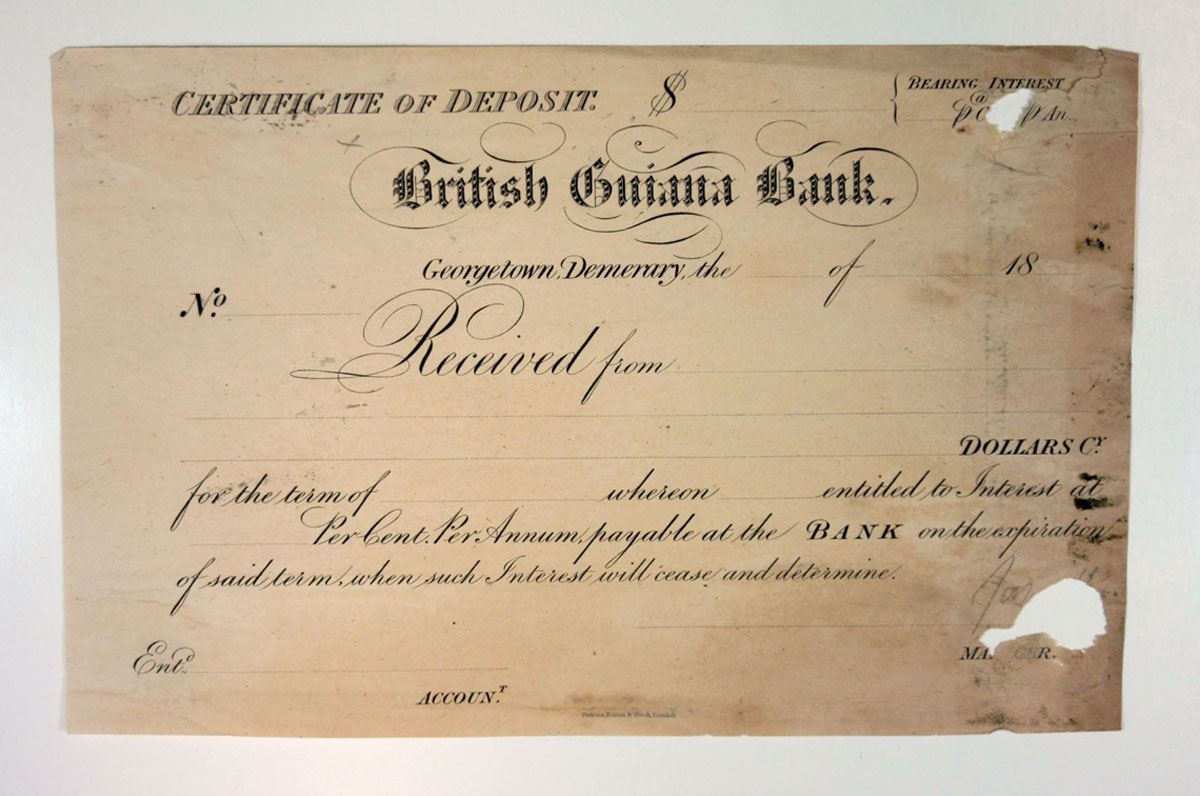 CERTIFICATE OF DEPOSIT. $
BEARING INTEREST
@
An.
British Guiana Bank.
Georgetown, Demerary, the of 18
No.
Received from
DOLLARS CY
for the term of whereon entitled to Interest at
Per Cent. Per Annum, payable at the BANK on the expiration
of said term, when such Interest will cease and determine.
Entd.
ACCOUNT.
Perkins, Bacon & Petch, London